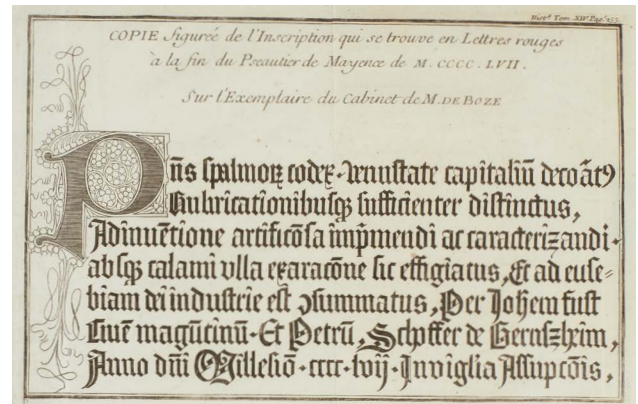 Histᵉ. Tom. XIV. Pag. 255.
COPIE figurée de l'Inscription qui se trouve en Lettres rouges
à la fin du Pseautier de Mayence de M. CCCC. LVII.
Sur l'Exemplaire du Cabinet de M. DE BOZE
Pn̄s spalmoꝝ codex · venustate capitaliū decoāt⁹
Rubricationibusqꝫ sufficienter distinctus,
Adinuētione artificōsa imp̄mendi ac caracterizandi ·
absqꝫ calami vlla exaracōne sic effigiatus, Et ad euse⸗
biam dei industrie est ꝯsummatus, Per Johēm fust
Ciuē magūtinū · Et Petrū, Schoffer de Gernszheim,
Anno dn̄i Millesiō · cccc · lvij · In vigilia Assūpcōis,